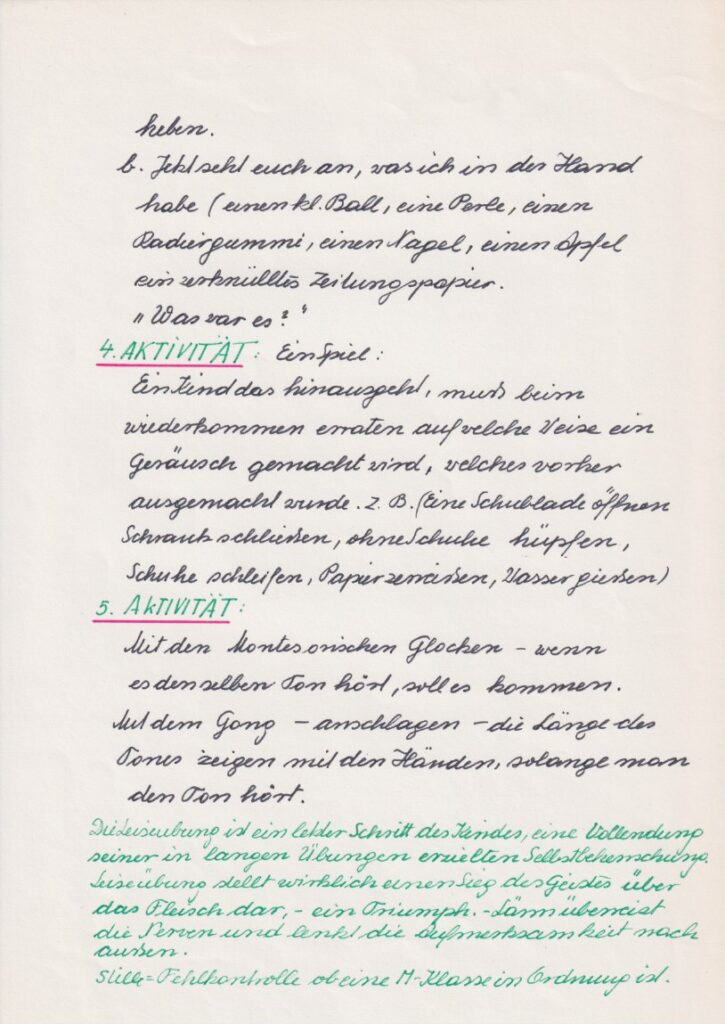 heben.
b. Jetzt seht euch an, was ich in der Hand
habe (einen kl. Ball, eine Perle, einen
Radiergummi, einen Nagel, einen Apfel
ein zerknülltes Zeitungspapier.
"Was war es?"
4. AKTIVITÄT: Ein Spiel:
Ein Kind das hinausgeht, muß beim
wiederkommen erraten auf welche Weise ein
Geräusch gemacht wird, welches vorher
ausgemacht wurde. z. B. (Eine Schublade öffnen
Schrank schließen, ohne Schuhe hüpfen,
Schuhe schleifen, Papier zerreißen, Wasser gießen)
5. AKTIVITÄT:
Mit den Montesorischen Glocken - wenn
es denselben Ton hört, soll es kommen.
Mit dem Gong - anschlagen - die Länge des
Tones zeigen mit den Händen, solange man
den Ton hört.
Die Leiseübung ist ein letzter Schritt des Kindes, eine Vollendung
seiner in langen Übungen erzielten Selbstbeherrschung.
Leiseübung stellt wirklich einen Sieg des Geistes über
das Fleisch dar, - ein Triumph. - Lärm überreizt
die Nerven und lenkt die Aufmerksamkeit nach
außen.
Stille = Fehlkontrolle ob eine M-Klasse in Ordnung ist.